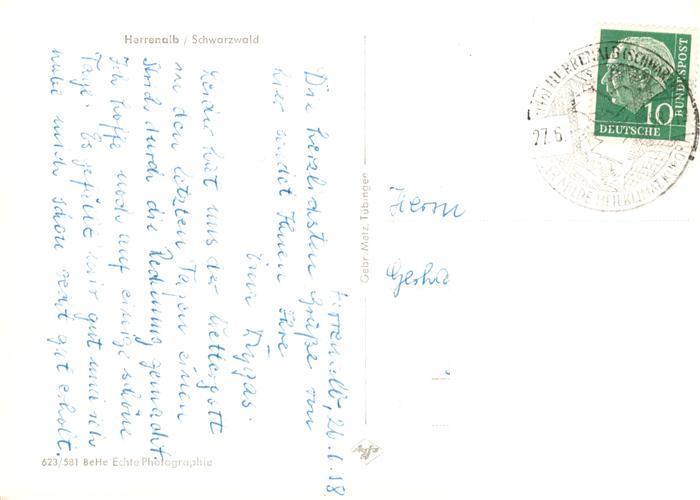 Herrenalb / Schwarzwald
Herrenalb, 26.6.58
Die herzlichsten Grüße von
hier sendet Ihnen Ihre
Leider hat uns der Wettergott
in den letzten Tagen einen
Strich durch die Rechnung gemacht.
Ich hoffe noch auf einige schöne
Tage. Es gefällt mir gut und ich
habe mich schon recht gut erholt.
623/581 BeHe Echte Photographie
Gebr. Metz, Tübingen
Agfa
Herrn
Gerha
HERRENALB (SCHWARZW
27.6.
HEILKLIMAT
10
DEUTSCHE
BUNDESPOST